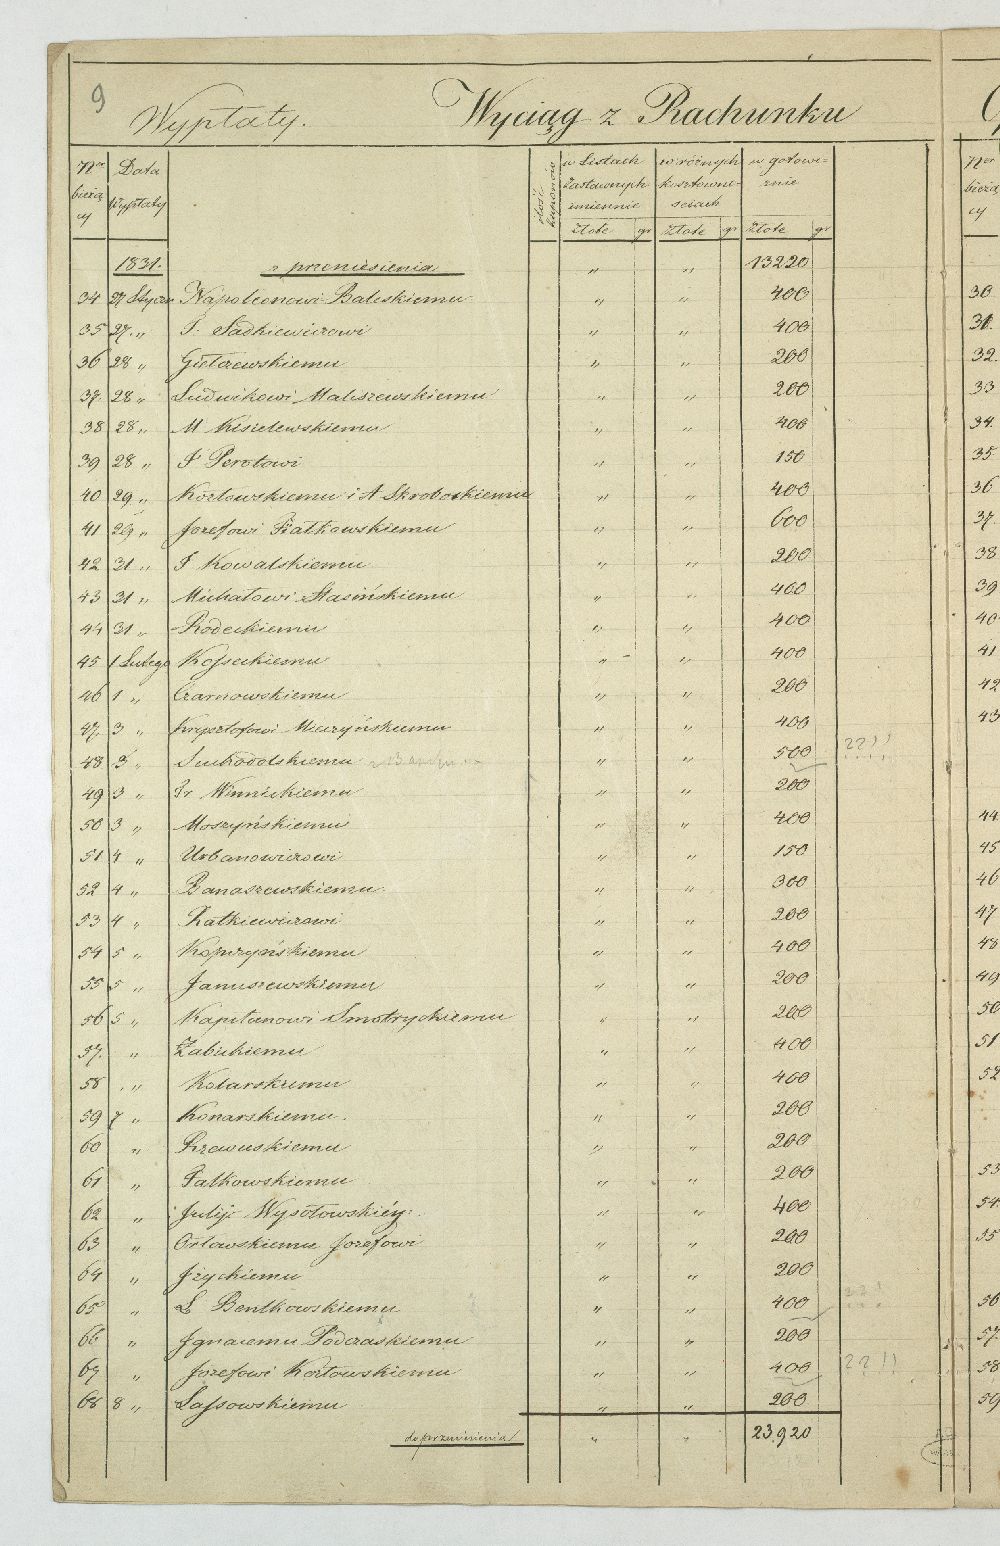 9
Wypłaty. Wyciąg z Rachunku
Ner bieżący Data Wypłaty ilość kuponów w Listach Zastawnych imiennie w różnych kosztownościach w gotowiznie
Złote gr Złote gr Złote gr
1831. z przeniesienia " " 13220
34 27 Stycz Napoleonowi Baleskiemu " " 400
35 27 " Sadkiewiczowi " " 400
36 28 " Giełczewskiemu " " 200
37. 28 " Ludwikowi Maliszewskiemu " " 200
38 28 " M Kisielewskiemu " " 400
39 28 " Perotowi " " 150
40 29 " Kozłowskiemu i A Skroboskiemu " " 400
41 29 " Jozefowi Fiałkowskiemu " " 600
42 31 " Kowalskiemu " " 200
43 31 " Michałowi Stasińskiemu " " 400
44 31 " Rodeckiemu " " 400
45 1 Lutego Kosseckiemu " " 400
46 1 " Czarnowskiemu " " 200
47. 3 " Krzysztofowi " " 400
48 3 " Suchodolskiemu " " 500 ??!!
49 3 " Fr Winnickiemu " " 200
50 3 " Moszyńskiemu " " 400
51 4 " Urbanowiczowi " " 150
52 4 " Banaszewskiemu " " 300
53 4 " Ratkiewiczowi " " 200
54 5 " Kopczyńskiemu " " 400
55 5 " Januszewskiemu " " 200
56 5 " Kapitanowi Smotryckiemu " " 200
57. " Żabickiemu " " 400
58 " Kolarskiemu " " 400
59 7 " Konarskiemu " " 200
60 " Rzewuskiemu " " 200
61 " Fałkowskiemu " " 200
62 " Julji Wysołowskiéy " " 400
63 " Orłowskiemu Jozefowi " " 200
64 " Jżyckiemu " " 200
65 " L Bentkowskiemu " " 400
66 " Jgnacemu Podczaskiemu " " 200
67 " Jozefowi Kozłowskiemu " " 400 ??!!
68 8 " Lassowskiemu " " 200
do przeniesienia " " 23.920
Ner bieżą cy
30
31.
32.
33
34.
35
36
37.
38
39
40
41
42
43
44
45
46
47
48
49
50
51
52
53
54.
55
56
57.
58
59